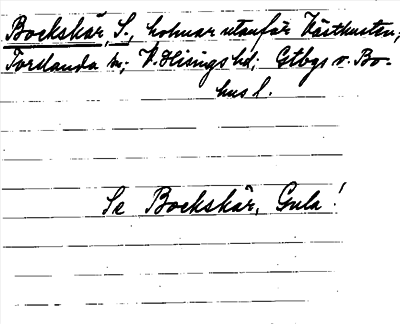 Bockskär, S., holmar utanför Västkusten;
Torslanda sn; V. Hisings hd; Gtbgs o. Bo-
hus l.
Se Bockskär, Gula!